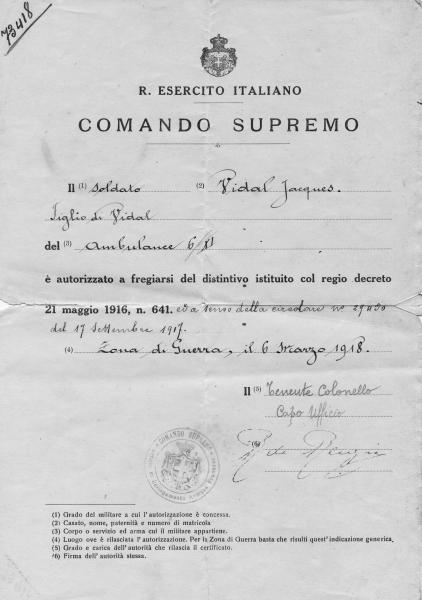 73418
R. ESERCITO ITALIANO
COMANDO SUPREMO
Il (1) Soldato (2) Vidal Jacques.
Figlio di Vidal
del (3) Ambulance 6/XI
è autorizzato a fregiarsi del distintivo istituito col regio decreto
21 maggio 1916, n. 641. ed a senso della circolare n° 29450
del 17 Settembre 1917.
(4) Zona di Guerra, il 6 Marzo 1918.
Il (5) Tenente Colonello
Capo Ufficio
(6)
COMANDO SUPREMO
(1) Grado del militare a cui l'autorizzazione è concessa.
(2) Casato, nome, paternità e numero di matricola
(3) Corpo o servizio ed arma cui il militare appartiene.
(4) Luogo ove è rilasciata l'autorizzazione. Per la Zona di Guerra basta che risulti quest'indicazione generica.
(5) Grado e carica dell'autorità che rilascia il certificato.
(6) Firma dell'autorità stessa.